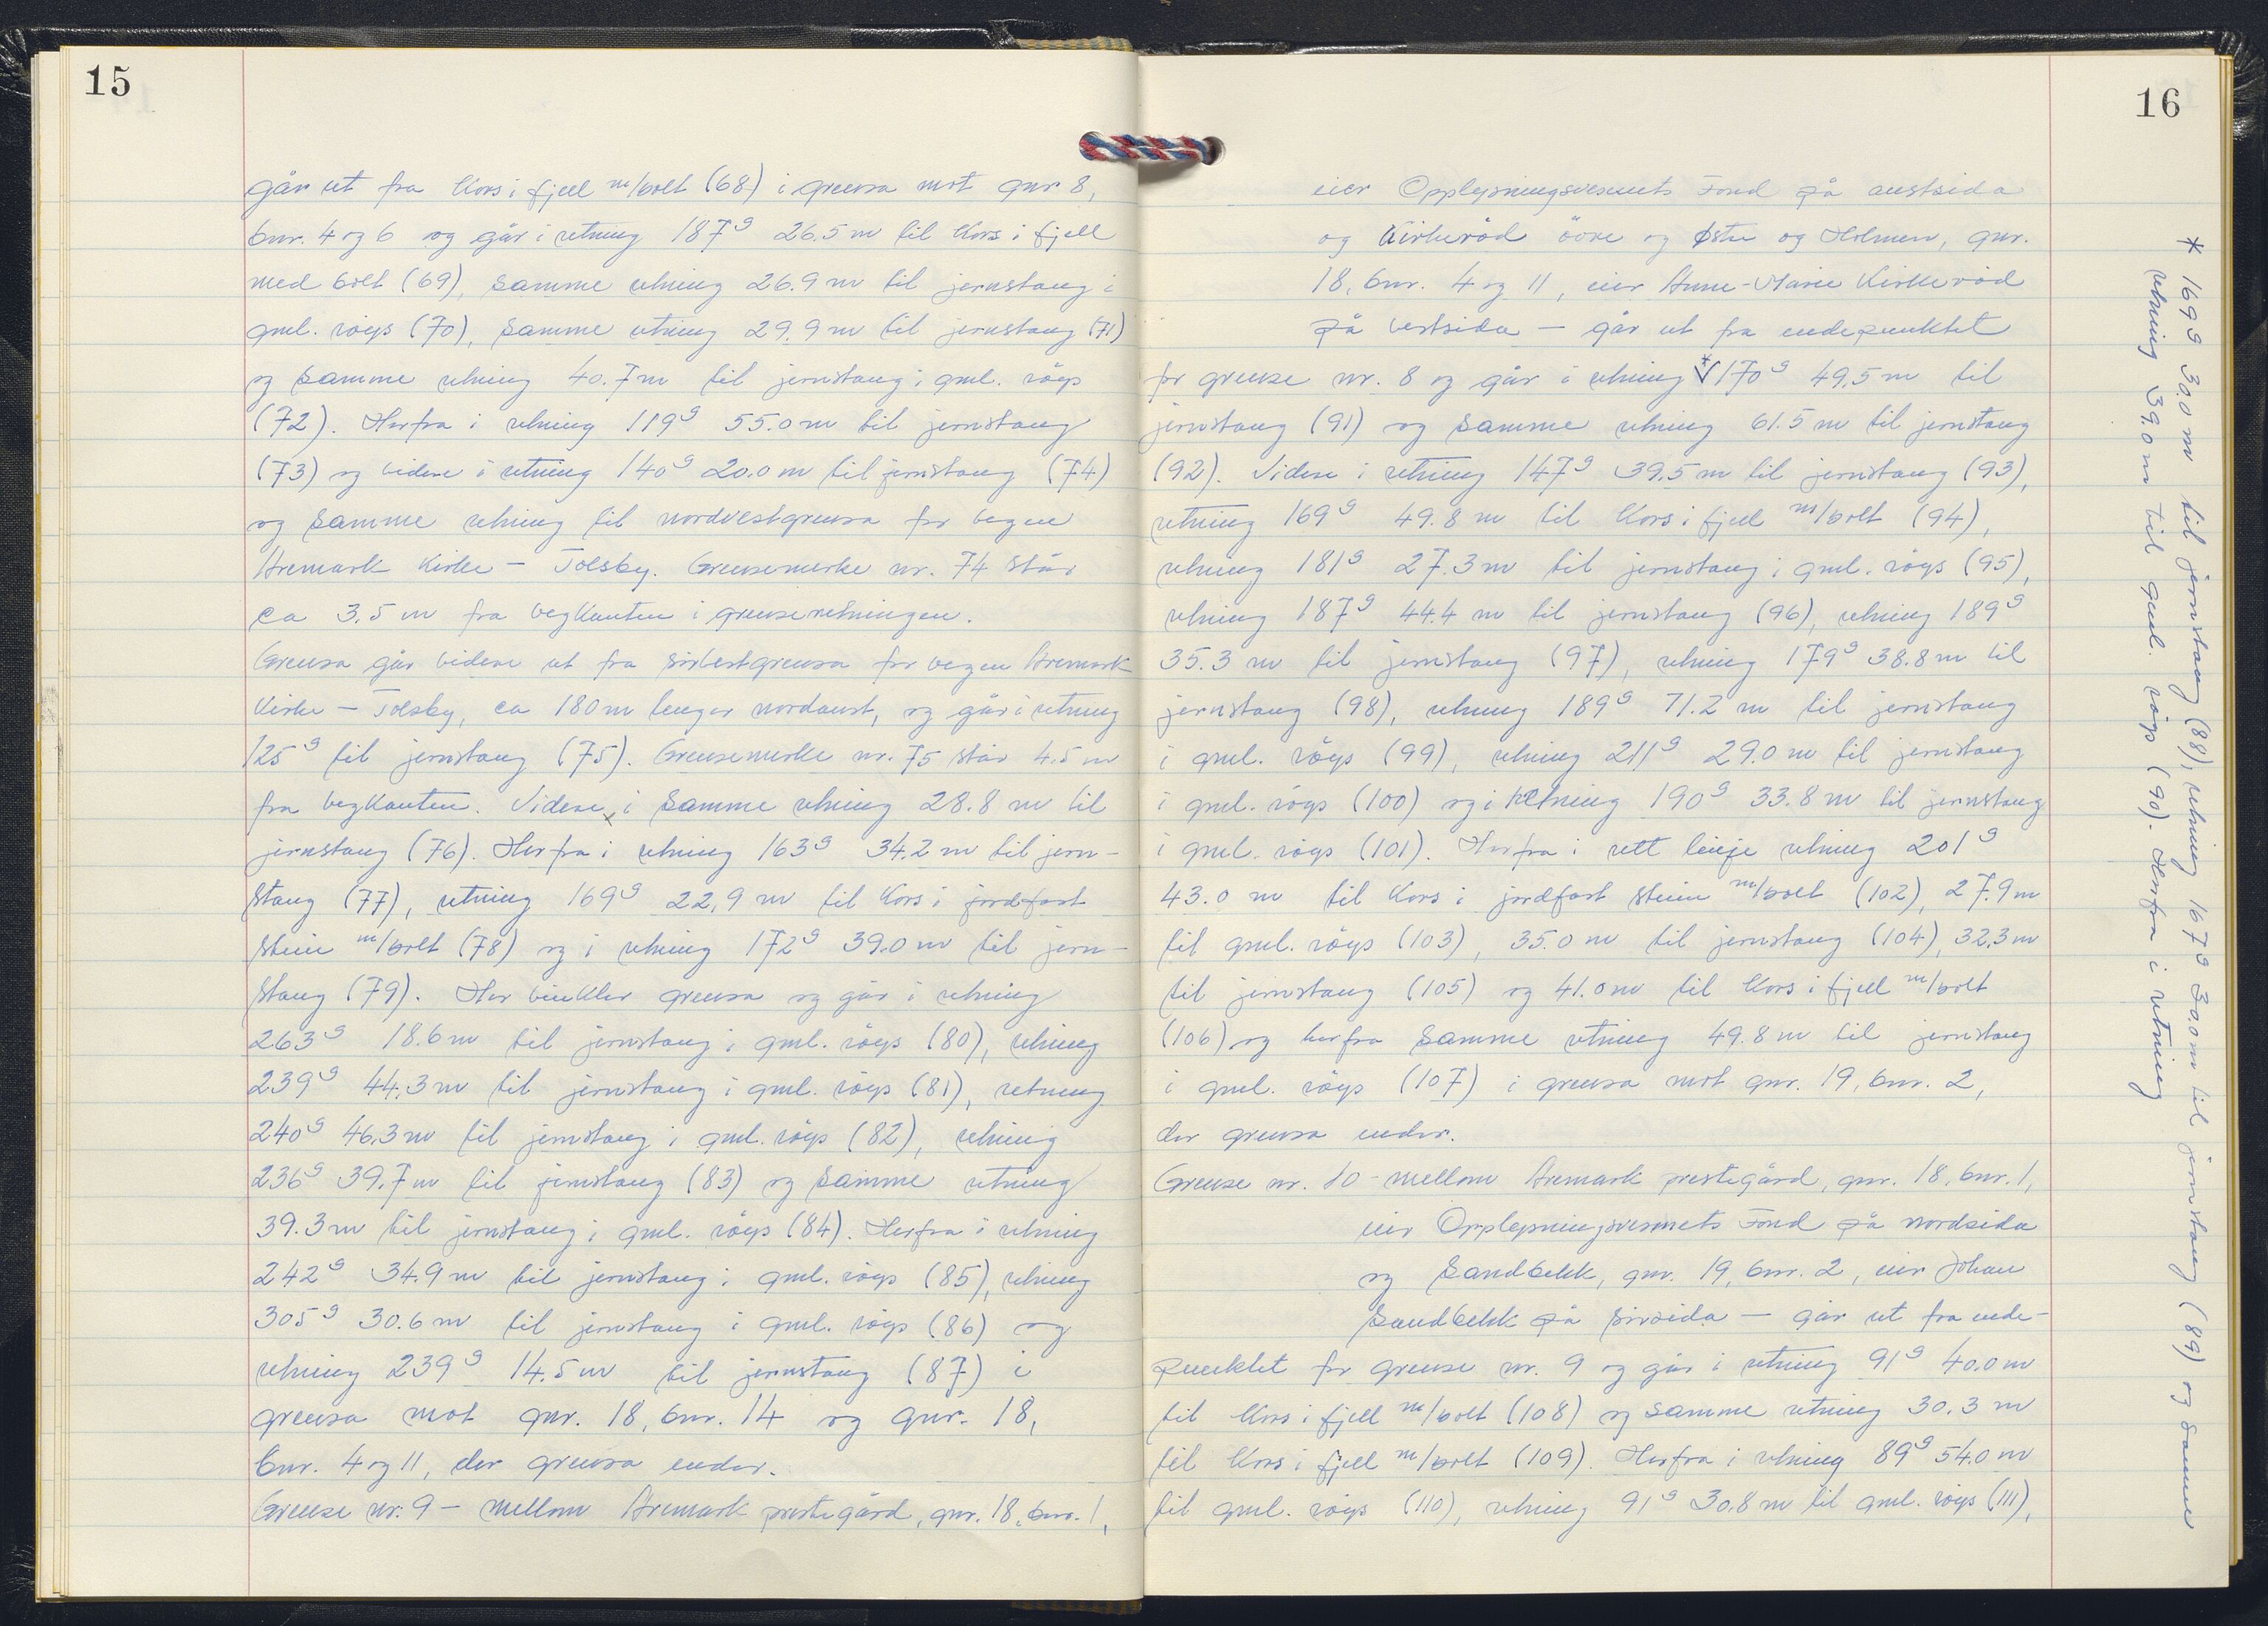 15
går ut fra Kors i fjell m/bolt (68) i grensa mot gnr 8,
bnr. 4 og 6 og går i retning 187ᵍ 26.5 m til Kors i fjell
med bolt (69), samme retning 26.9 m til jernstang i
gml. röys (70), samme retning 29.9 m til jernstang (71)
og samme retning 40.7 m til jernstang i gml. röys
(72). Herfra i retning 119ᵍ 55.0 m til jernstang
(73) og videre i retning 140ᵍ 20.0 m til jernstang (74)
og samme retning til nordvestgrensa for vegen
Aremark Kirke – Tolsby. Grensemerke nr. 74 står
ca 3.5 m fra vegkanten i grenseretningen.
Grensa går videre ut fra sörestgrensa for vegen Aremark
Kirke – Tolsby, ca 180 m lenger nordaust, og går i retning
125ᵍ til jernstang (75). Grensemerke nr. 75 står 4.5 m
fra vegkanten. Videre i samme retning 28.8 m til
jernstang (76). Herfra i retning 163ᵍ 34.2 m til jern-
stang (77), retning 169ᵍ 22,9 m til Kors i jordfast
stein m/bolt (78) og i retning 172ᵍ 39.0 m til jern-
stang (79). Her vinkler grensa og går i retning
263ᵍ 18.6 m til jernstang i gml. röys (80), retning
239ᵍ 44.3 m til jernstang i gml. röys (81), retning
240ᵍ 46.3 m til jernstang i gml. röys (82), retning
236ᵍ 39.7 m til jernstang (83) og samme retning
39.3 m til jernstang i gml. röys (84). Herfra i retning
242ᵍ 34.9 m til jernstang i gml. röys (85), retning
305ᵍ 30.6 m til jernstang i gml. röys (86) og
retning 239ᵍ 14.5 m til jernstang (87) i
grensa mot gnr. 18, bnr. 14 og gnr. 18,
bnr. 4 og 11, der grensa ender.
Grense nr. 9 – mellom Aremark prestegård, gnr. 18, bnr. 1,
16
eier Opplysningsvesenets Fond på austsida
og Kirkeröd övre og Østre og Holmen, gnr.
18, bnr. 4 og 11, eier Anne-Marie Kirkeröd
på vestsida – går ut fra endepunktet
for grense nr. 8 og går i retning * 170ᵍ 49,5 m til
jernstang (91) og samme retning 61.5 m til jernstang
(92). Videre i retning 147ᵍ 39.5 m til jernstang (93),
retning 169ᵍ 49.8 m til Kors i fjell m/bolt (94),
retning 181ᵍ 27.3 m til jernstang i gml. röys (95),
retning 187ᵍ 44.4 m til jernstang (96), retning 189ᵍ
35.3 m til jernstang (97), retning 179ᵍ 38.8 m til
jernstang (98), retning 189ᵍ 71.2 m til jernstang
i gml. röys (99), retning 211ᵍ 29.0 m til jernstang
i gml. röys (100) og i retning 190ᵍ 33.8 m til jernstang
i gml. röys (101). Herfra i rett linje retning 201ᵍ
43.0 m til Kors i jordfast stein m/bolt (102), 27.9 m
til gml. röys (103), 35.0 m til jernstang (104), 32.3 m
til jernstang (105) og 41.0 m til Kors i fjell m/bolt
(106) og herfra samme retning 49.8 m til jernstang
i gml. röys (107) i grensa mot gnr. 19, bnr. 2,
der grensa ender.
Grense nr. 10 – mellom Aremark prestegård, gnr. 18, bnr. 1,
eier Opplysningsvesenets Fond på nordsida
og Sandbekk, gnr. 19, bnr. 2, eier Johan
Sandbekk på sörsida – går ut fra ende-
punktet for grense nr. 9 og går i retning 91ᵍ 40.0 m
til Kors i fjell m/bolt (108) og samme retning 30.3 m
til Kors i fjell m/bolt (109). Herfra i retning 89ᵍ 54.0 m
til gml. röys (110), retning 91ᵍ 30.8 m til gml. röys (111),
* 169ᵍ 30.0 m til jernstang (88), retning 167ᵍ 30.0 m til jernstang (89) og samme
retning 39.0 m til gml. röys (90). Herfra i retning